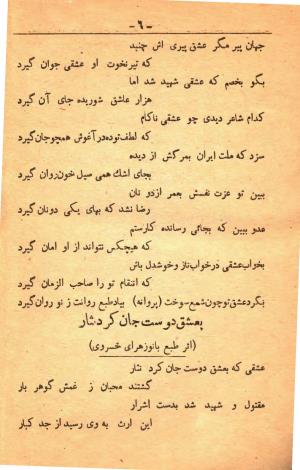 -٦-
جهان پیر مگر عشق پیری اش چنبد
که تیر نخوت او عشقی جوان گیرد
بگو بخصم که عشقی شهید شد اما
هزار عاشق شوریده جای آن گیرد
کدام شاعر دیدی چو عشقی ناکام
که لطف توده در آغوش همچو جان گیرد
سزد که ملت ایران بمرگش از دیده
بجای اشك همی سیل خون روان گیرد
ببین تو عزت نفسش بعمر از دو نان
رضا نشد که بهای یکی دو نان گیرد
عدو ببین که بجائی رسانده کارستم
که هیچکس نتواند از او امان گیرد
بخواب عشقی در خواب ناز و خوشدل باش
که انتقام تو را صاحب الزمان گیرد
بگرد عشق تو چون شمع سوخت (پروانه) بیاد طبع روانت ز نو روان گیرد
بعشق دوست جان کرد نثار
(اثر طبع بانو زهرای خسروی)
عشقی که بعشق دوست جان کرد نثار
گشتند محبان ز غمش گوهر بار
مقتول و شهید شد بدست اشرار
این ارث به وی رسید از جد کبار